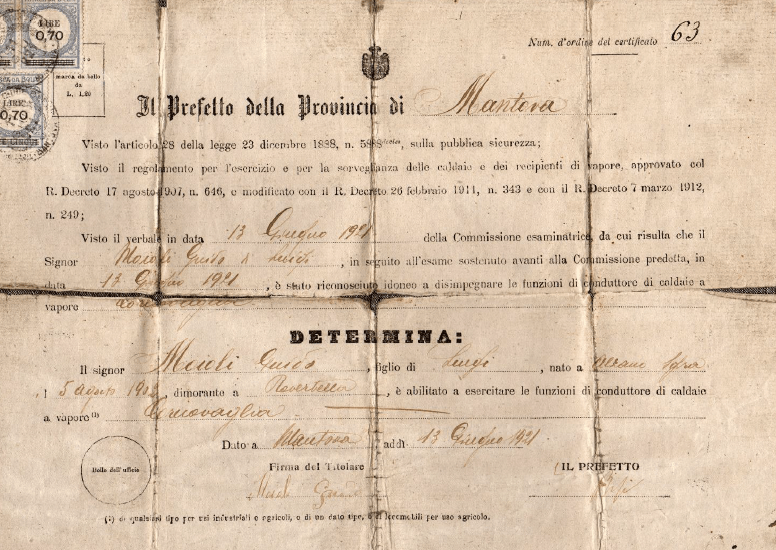 LIRE
0,70
LIRE
0,70
marca da bollo
da
L. 1,20
Num. d'ordine del certificato 63
Il Prefetto della Provincia di Mantova
Visto l'articolo 28 della legge 23 dicembre 1888, n. sulla pubblica sicurezza;
Visto il regolamento per l'esercizio e per la sorveglianza delle caldaie e dei recipienti di vapore, approvato col
R. Decreto 17 agosto 1907, n. 646, e modificato con il R. Decreto 26 febbraio 1911, n. 343 e con il R. Decreto 7 marzo 1912,
n. 249;
Visto il verbale in data 13 Giugno 1921 della Commissione esaminatrice, da cui risulta che il
Signor Guido di Luigi, in seguito all'esame sostenuto avanti alla Commissione predetta, in
data 13 Giugno 1921, è stato riconosciuto idoneo a disimpegnare le funzioni di conduttore di caldaie a
vapore
DETERMINA:
Il signor Guido, figlio di Luigi, nato a
5 agosto dimorante a Roverbella, è abilitato a esercitare le funzioni di conduttore di caldaie
a vapore(1)
Dato a Mantova addì 13 Giugno 1921
Firma del Titolare
IL PREFETTO
Bollo dell'ufficio
(1) di qualsiasi tipo per usi industriali e agricoli, o di un dato tipo, o di locomobili per uso agricolo.